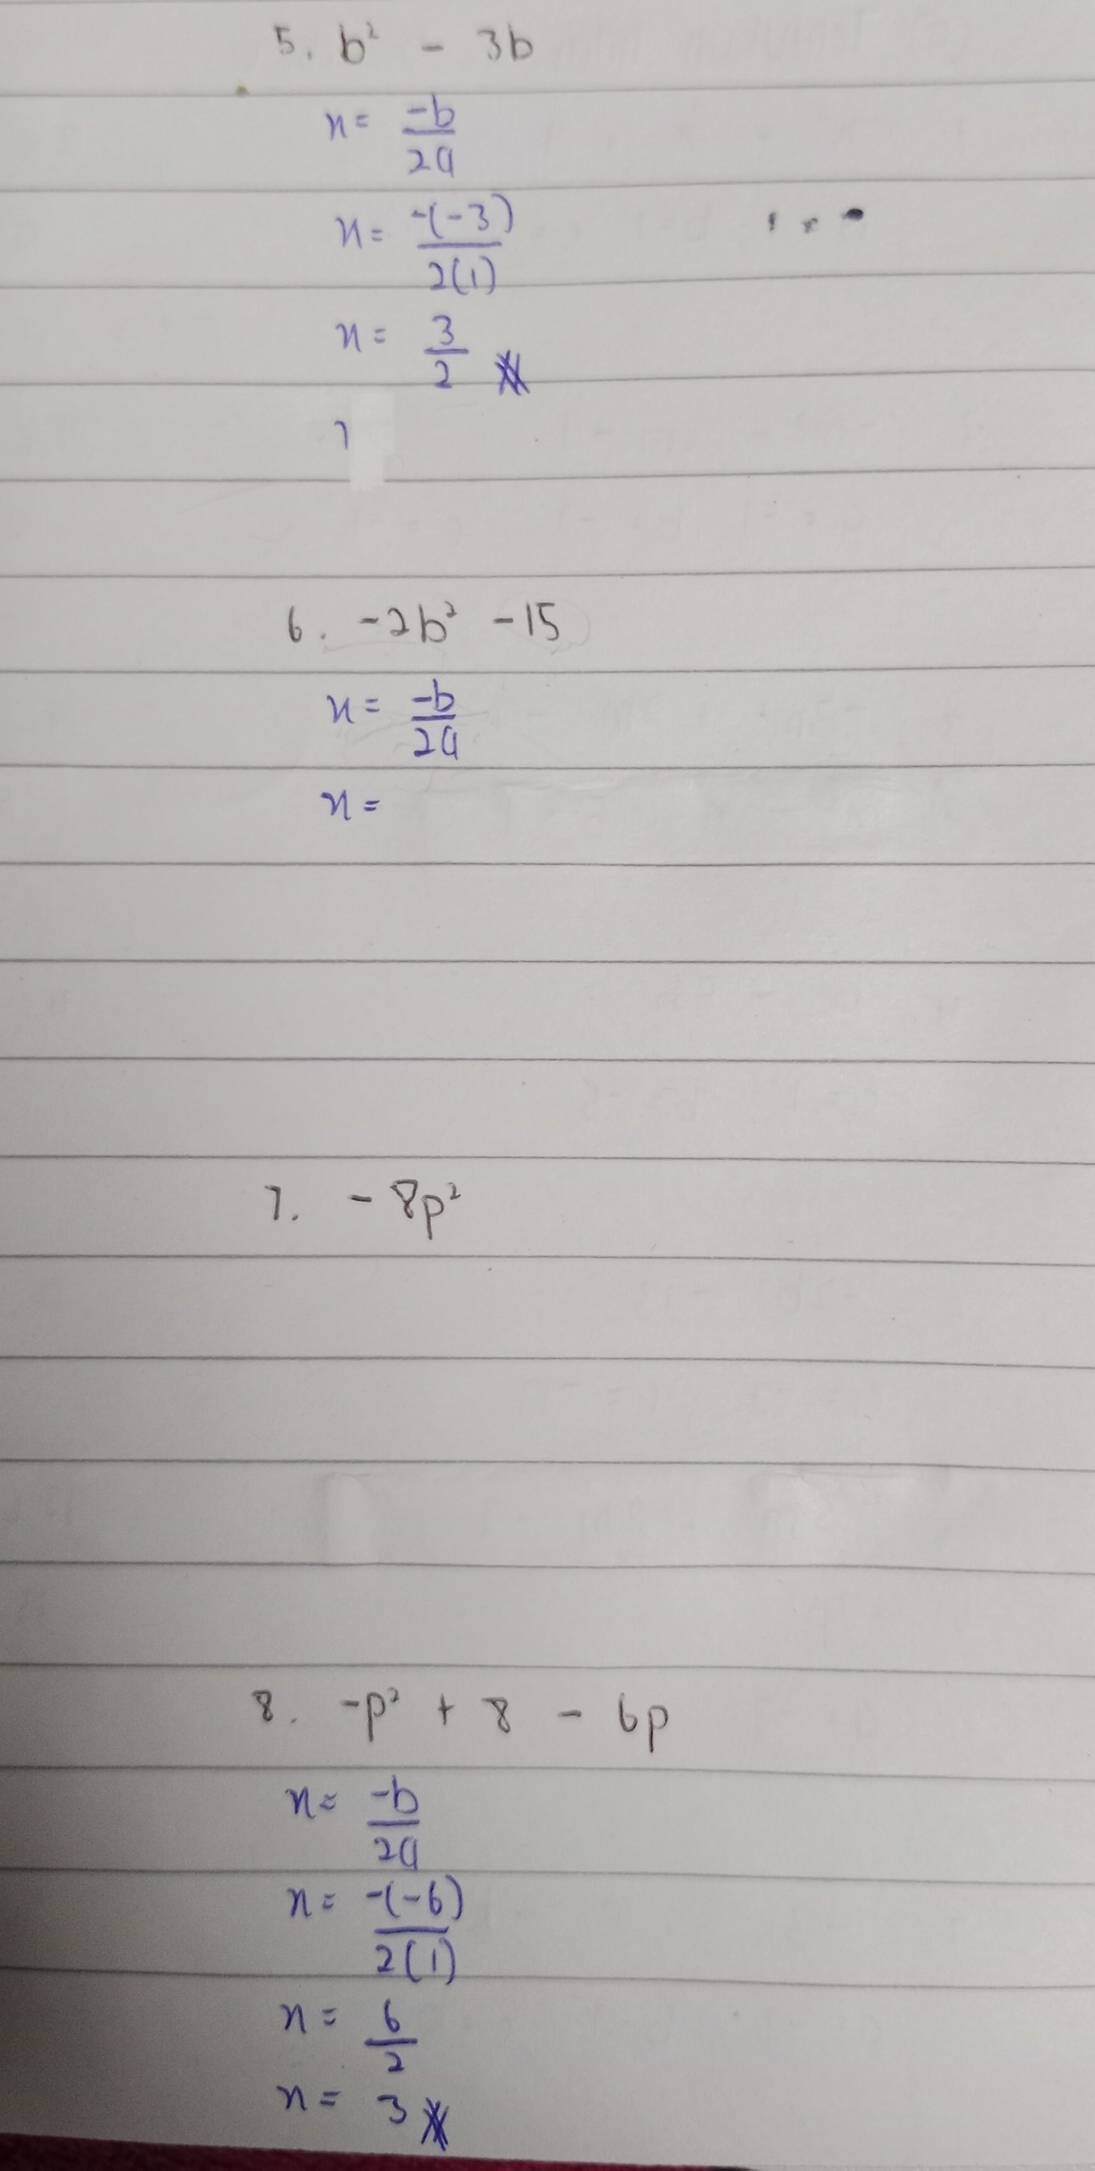 5. b² - 3b
x = -b/2a
x = -(-3)/2(1)
x = 3/2
6. -2b² - 15
x = -b/2a
x =
7. - 8p²
8. -p² + 8 - 6p
x = -b/2a
x = -(-6)/2(1)
x = 6/2
x = 3